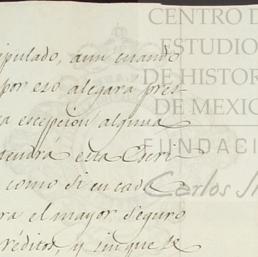 CENTRO D
ESTUDIO
DE HISTOR
DE MEXIC
FUNDACI
Carlos Sl
ipulado, aun cuando
por eso alegara pres-
a excepcion alguna
tendrá esta Escri
como si en cada
ra el mayor seguro
réditos, y sin que se